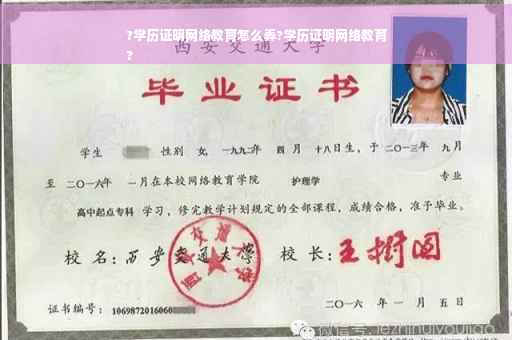 ?学历证明网络教育怎么弄?学历证明网络教育
?
西安交通大学
毕业证书
学生 性别 女, 一九九二年 四 月 十八日生，于 二〇一三年 九月
至 二〇一六年 一月在本校网络教育学院 护理学 专业
高中起点专科 学习，修完教学计划规定的全部课程，成绩合格，准予毕业。
校 名：西安交通大学 校 长：王树国
西安交通大学
证书编号： 1069872016060
二〇一六 年 一 月 五 日
微信号: jezhihuiyoujiao